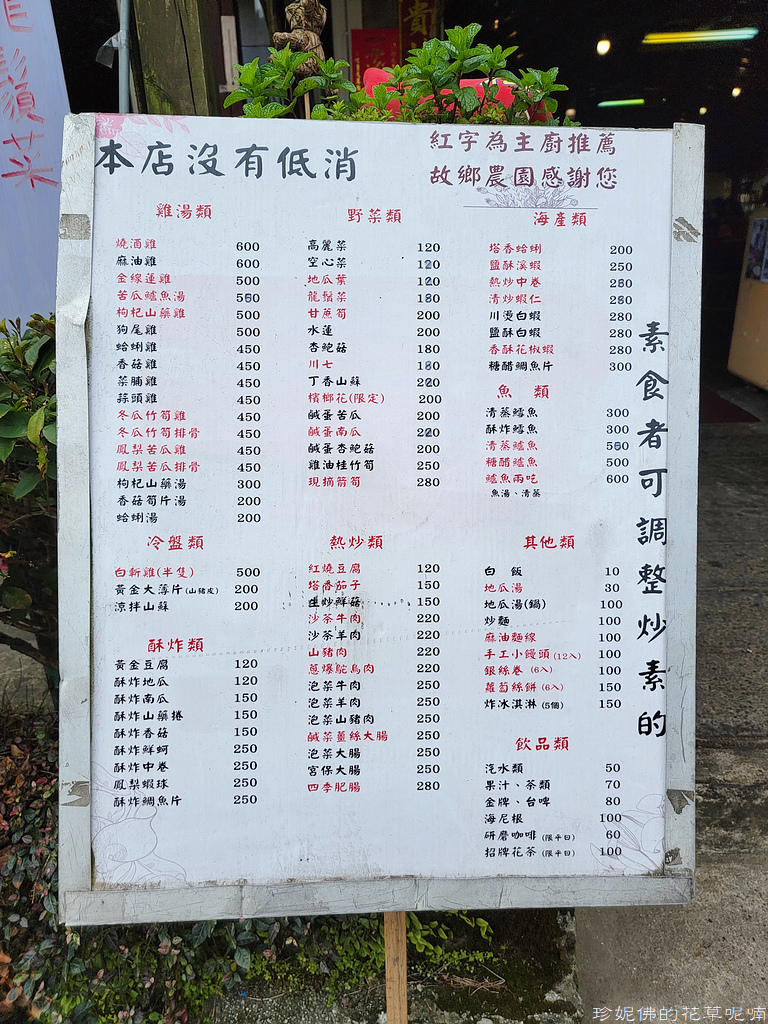 鬚菜
貴
本店沒有低消
紅字為主廚推薦
故鄉農園感謝您
雞湯類
燒酒雞 600
麻油雞 600
金線蓮雞 500
苦瓜鱸魚湯 550
枸杞山藥雞 500
狗尾雞 500
蛤蜊雞 450
香菇雞 450
菜脯雞 450
蒜頭雞 450
冬瓜竹筍雞 450
冬瓜竹筍排骨 450
鳳梨苦瓜雞 450
鳳梨苦瓜排骨 450
枸杞山藥湯 300
香菇筍片湯 200
蛤蜊湯 200
冷盤類
白斬雞(半隻) 500
黃金大薄片(山豬皮) 200
涼拌山蘇 200
酥炸類
黃金豆腐 120
酥炸地瓜 120
酥炸南瓜 150
酥炸山藥捲 150
酥炸香菇 150
酥炸鮮蚵 250
酥炸中卷 250
鳳梨蝦球 250
酥炸鯛魚片 250
野菜類
高麗菜 120
空心菜 120
地瓜葉 120
龍鬚菜 180
甘蔗筍 200
水蓮 200
杏鮑菇 180
川七 180
丁香山蘇 220
檳榔花(限定) 200
鹹蛋苦瓜 200
鹹蛋南瓜 220
鹹蛋杏鮑菇 200
雞油桂竹筍 250
現摘箭筍 280
熱炒類
紅燒豆腐 120
塔香茄子 150
生炒鮮菇 150
沙茶牛肉 220
沙茶羊肉 220
山豬肉 220
蔥爆鴕鳥肉 220
泡菜牛肉 250
泡菜羊肉 250
泡菜山豬肉 250
鹹菜薑絲大腸 250
泡菜大腸 250
宮保大腸 250
四季肥腸 280
海產類
塔香蛤蜊 200
鹽酥溪蝦 250
熱炒中卷 250
清炒蝦仁 260
川燙白蝦 280
鹽酥白蝦 280
香酥花椒蝦 280
糖醋鯛魚片 300
魚 類
清蒸鱈魚 300
酥炸鱈魚 300
清蒸鱸魚 550
糖醋鱸魚 500
鱸魚兩吃 600
魚湯、清蒸
其他類
白 飯 10
地瓜湯 30
地瓜湯(鍋) 100
炒麵 100
麻油麵線 100
手工小饅頭(12入) 100
銀絲卷(6入) 100
蘿蔔絲餅(6入) 150
炸冰淇淋(5個) 150
飲品類
汽水類 50
果汁、茶類 70
金牌、台啤 80
海尼根 100
研磨咖啡(限平日) 60
招牌花茶(限平日) 100
素食者可調整炒素的
珍妮佛的花草呢喃